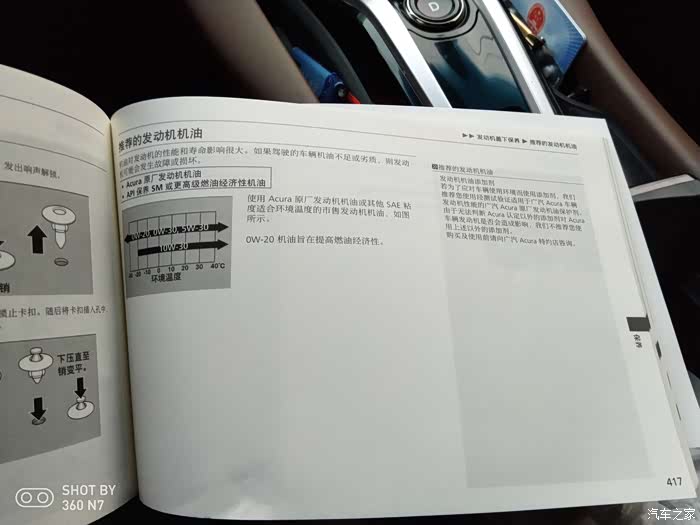 D
推荐的发动机机油
▶▶ 发动机盖下保养 ▶ 推荐的发动机机油
机油对发动机的性能和寿命影响很大。如果驾驶的车辆机油不足或劣质，则发动
机可能会发生故障或损坏。
• Acura 原厂发动机机油
• API 保养 SM 或更高级燃油经济性机油
0W-20, 0W-30, 5W-30
10W-30
-20 -10 0 10 20 30 40℃
环境温度
使用 Acura 原厂发动机机油或其他 SAE 粘
度适合环境温度的市售发动机机油，如图
所示。
0W-20 机油旨在提高燃油经济性。
推荐的发动机机油
发动机机油添加剂
若为了应对车辆使用环境而使用添加剂，我们
推荐您使用经测试验证适用于广汽 Acura 车辆
发动机性能的广汽 Acura 原厂发动机机油保护剂。
由于无法判断 Acura 认定以外的添加剂对 Acura
车辆发动机是否会造成影响，我们不推荐您使
用上述以外的添加剂。
购买及使用前请向广汽 Acura 特约店咨询。
保养
417
发出响声解锁。
销
锁止卡扣。随后将卡扣插入孔中
下压直至
销变平。
SHOT BY
360 N7
汽车之家